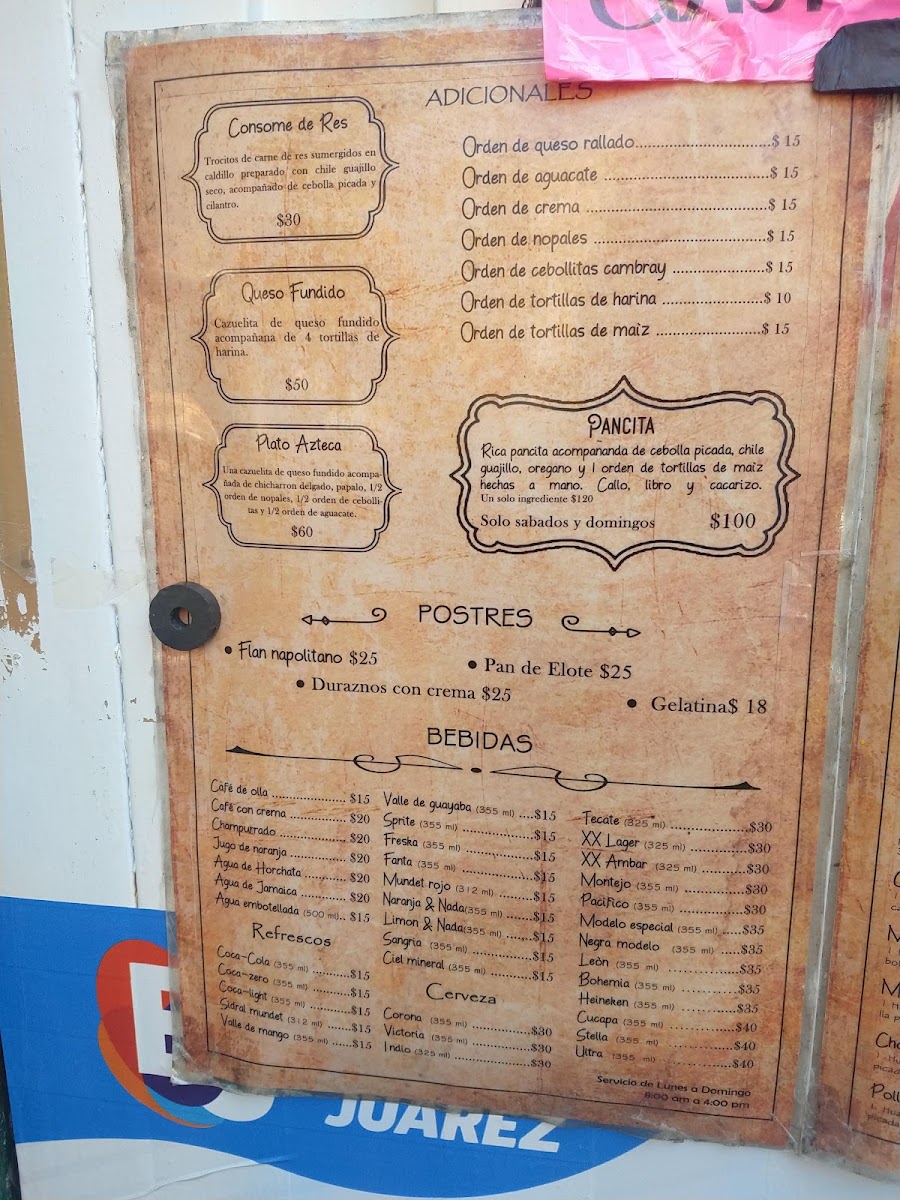 Consome de Res
Trocitos de carne de res sumergidos en
caldillo preparado con chile guajillo
seco, acompañado de cebolla picada y
cilantro.
$30
Queso Fundido
Cazuelita de queso fundido
acompañana de 4 tortillas de
harina.
$50
Plato Azteca
Una cazuelita de queso fundido acompa-
ñada de chicharron delgado, papalo, 1/2
orden de nopales, 1/2 orden de ceboll-
itas y 1/2 orden de aguacate.
$60
ADICIONALES
Orden de queso rallado..........................$ 15
Orden de aguacate ................................$ 15
Orden de crema ...................................$ 15
Orden de nopales .................................$ 15
Orden de cebollitas cambray ..................$ 15
Orden de tortillas de harina ....................$ 10
Orden de tortillas de maiz .....................$ 15
PANCITA
Rica pancita acompananda de cebolla picada, chile
guajillo, oregano y 1 orden de tortillas de maiz
hechas a mano. Callo, libro y cacarizo.
Un solo ingrediente $120
Solo sabados y domingos $100
POSTRES
• Flan napolitano $25
• Pan de Elote $25
• Duraznos con crema $25
• Gelatina$ 18
BEBIDAS
Café de olla ...................... $15
Café con crema ................. $20
Champurrado .................... $20
Jugo de naranja ................. $20
Agua de Horchata .............. $20
Agua de Jamaica ............... $20
Agua embotellada (500 ml).. $15
Refrescos
Coca-Cola (355 ml) ...........$15
Coca-zero (355 ml) ............$15
Coca-light (355 ml) ............$15
Sidral mundet (312 ml) .......$15
Valle de mango (355 ml) ......$15
Valle de guayaba (355 ml) ....$15
Sprite (355 ml) ...................$15
Freska (355 ml) ..................$15
Fanta (355 ml) ...................$15
Mundet rojo (312 ml) ..........$15
Naranja & Nada(355 ml) .......$15
Limon & Nada(355 ml) .........$15
Sangria (355 ml) .................$15
Ciel mineral (355 ml) ...........$15
Cerveza
Corona (355 ml) .................$30
Victoria (355 ml) ................$30
Indio (325 ml) ....................$30
Tecate (325 ml) ..................$30
XX Lager (325 ml) ...............$30
XX Ambar (325 ml) ..............$30
Montejo (355 ml) ................$30
Pacifico (355 ml) ................$30
Modelo especial (355 ml) .....$35
Negra modelo (355 ml) .....$35
Leòn (355 ml) ....................$35
Bohemia (355 ml) ...............$35
Heineken (355 ml) ..............$35
Cucapa (355 ml) .................$40
Stella (355 ml) ...................$40
Ultra (355 ml) ....................$40
Servicio de Lunes a Domingo
8:00 am a 4:00 pm
JUÁREZ